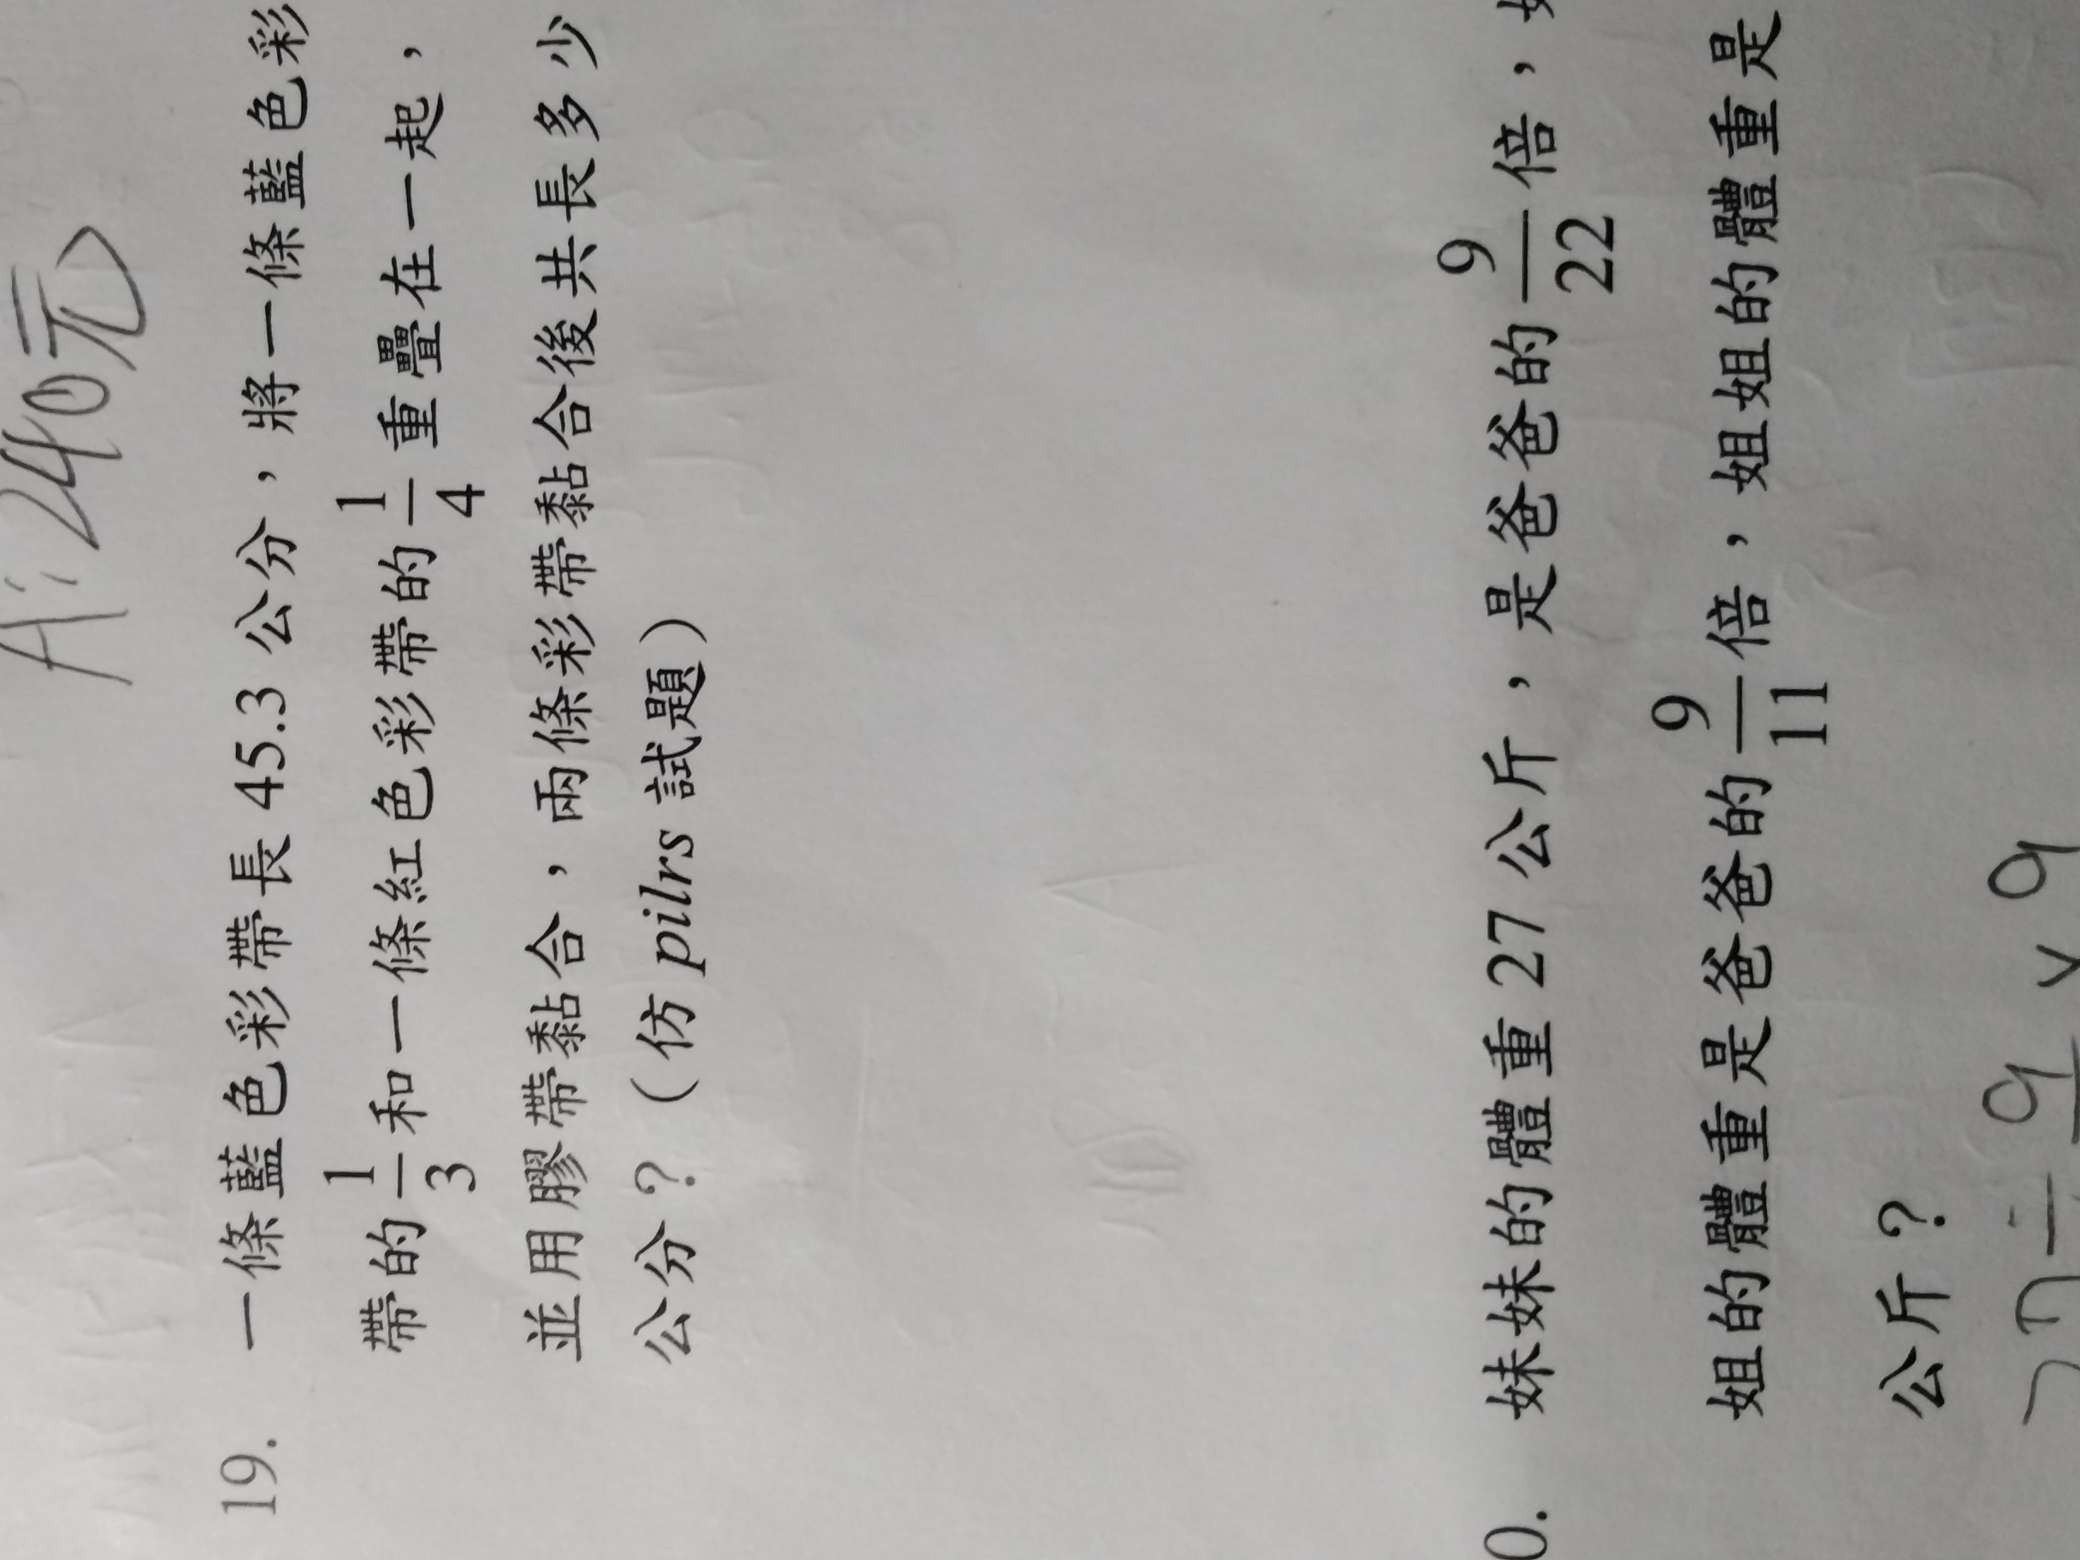 A: 240元
19. 一條藍色彩帶長 45.3 公分，將一條藍色彩
帶的 1/3 和一條紅色彩帶的 1/4 重疊在一起，
並用膠帶黏合，兩條彩帶黏合後共長多少
公分？（仿 pilrs 試題）
0. 妹妹的體重 27 公斤，是爸爸的 9/22 倍，
姐的體重是爸爸的 9/11 倍，姐姐的體重是
公斤？
27 ÷ 9 × 9